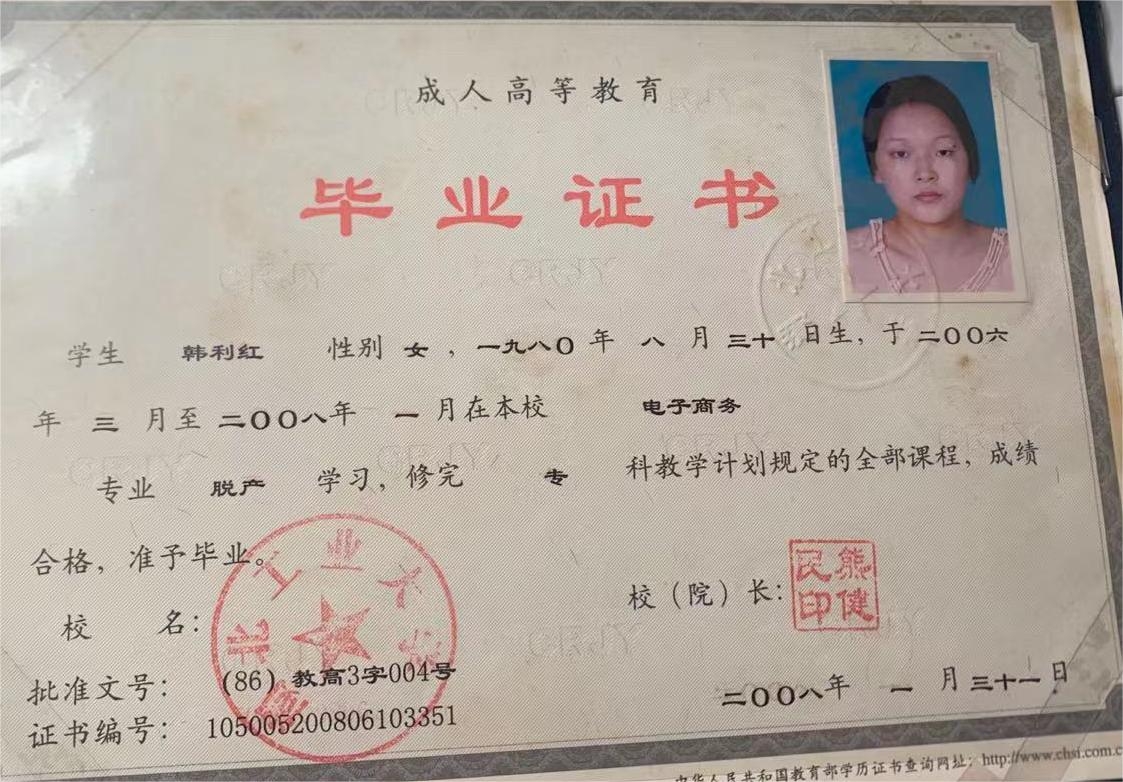 成人高等教育
毕业证书
学生 韩利红 性别 女，一九八〇年 八 月 三十 日生，于 二〇〇六
年 三 月至 二〇〇八年 一 月在本校 电子商务
专业 脱产 学习，修完 专 科教学计划规定的全部课程，成绩
合格，准予毕业。
湖北工业大学
校 名：
校（院）长：
熊健民印
批准文号：(86) 教高3字004号
二〇〇八年 一 月 三十一 日
证书编号：105005200806103351
中华人民共和国教育部学历证书查询网址：http://www.chsi.com.c